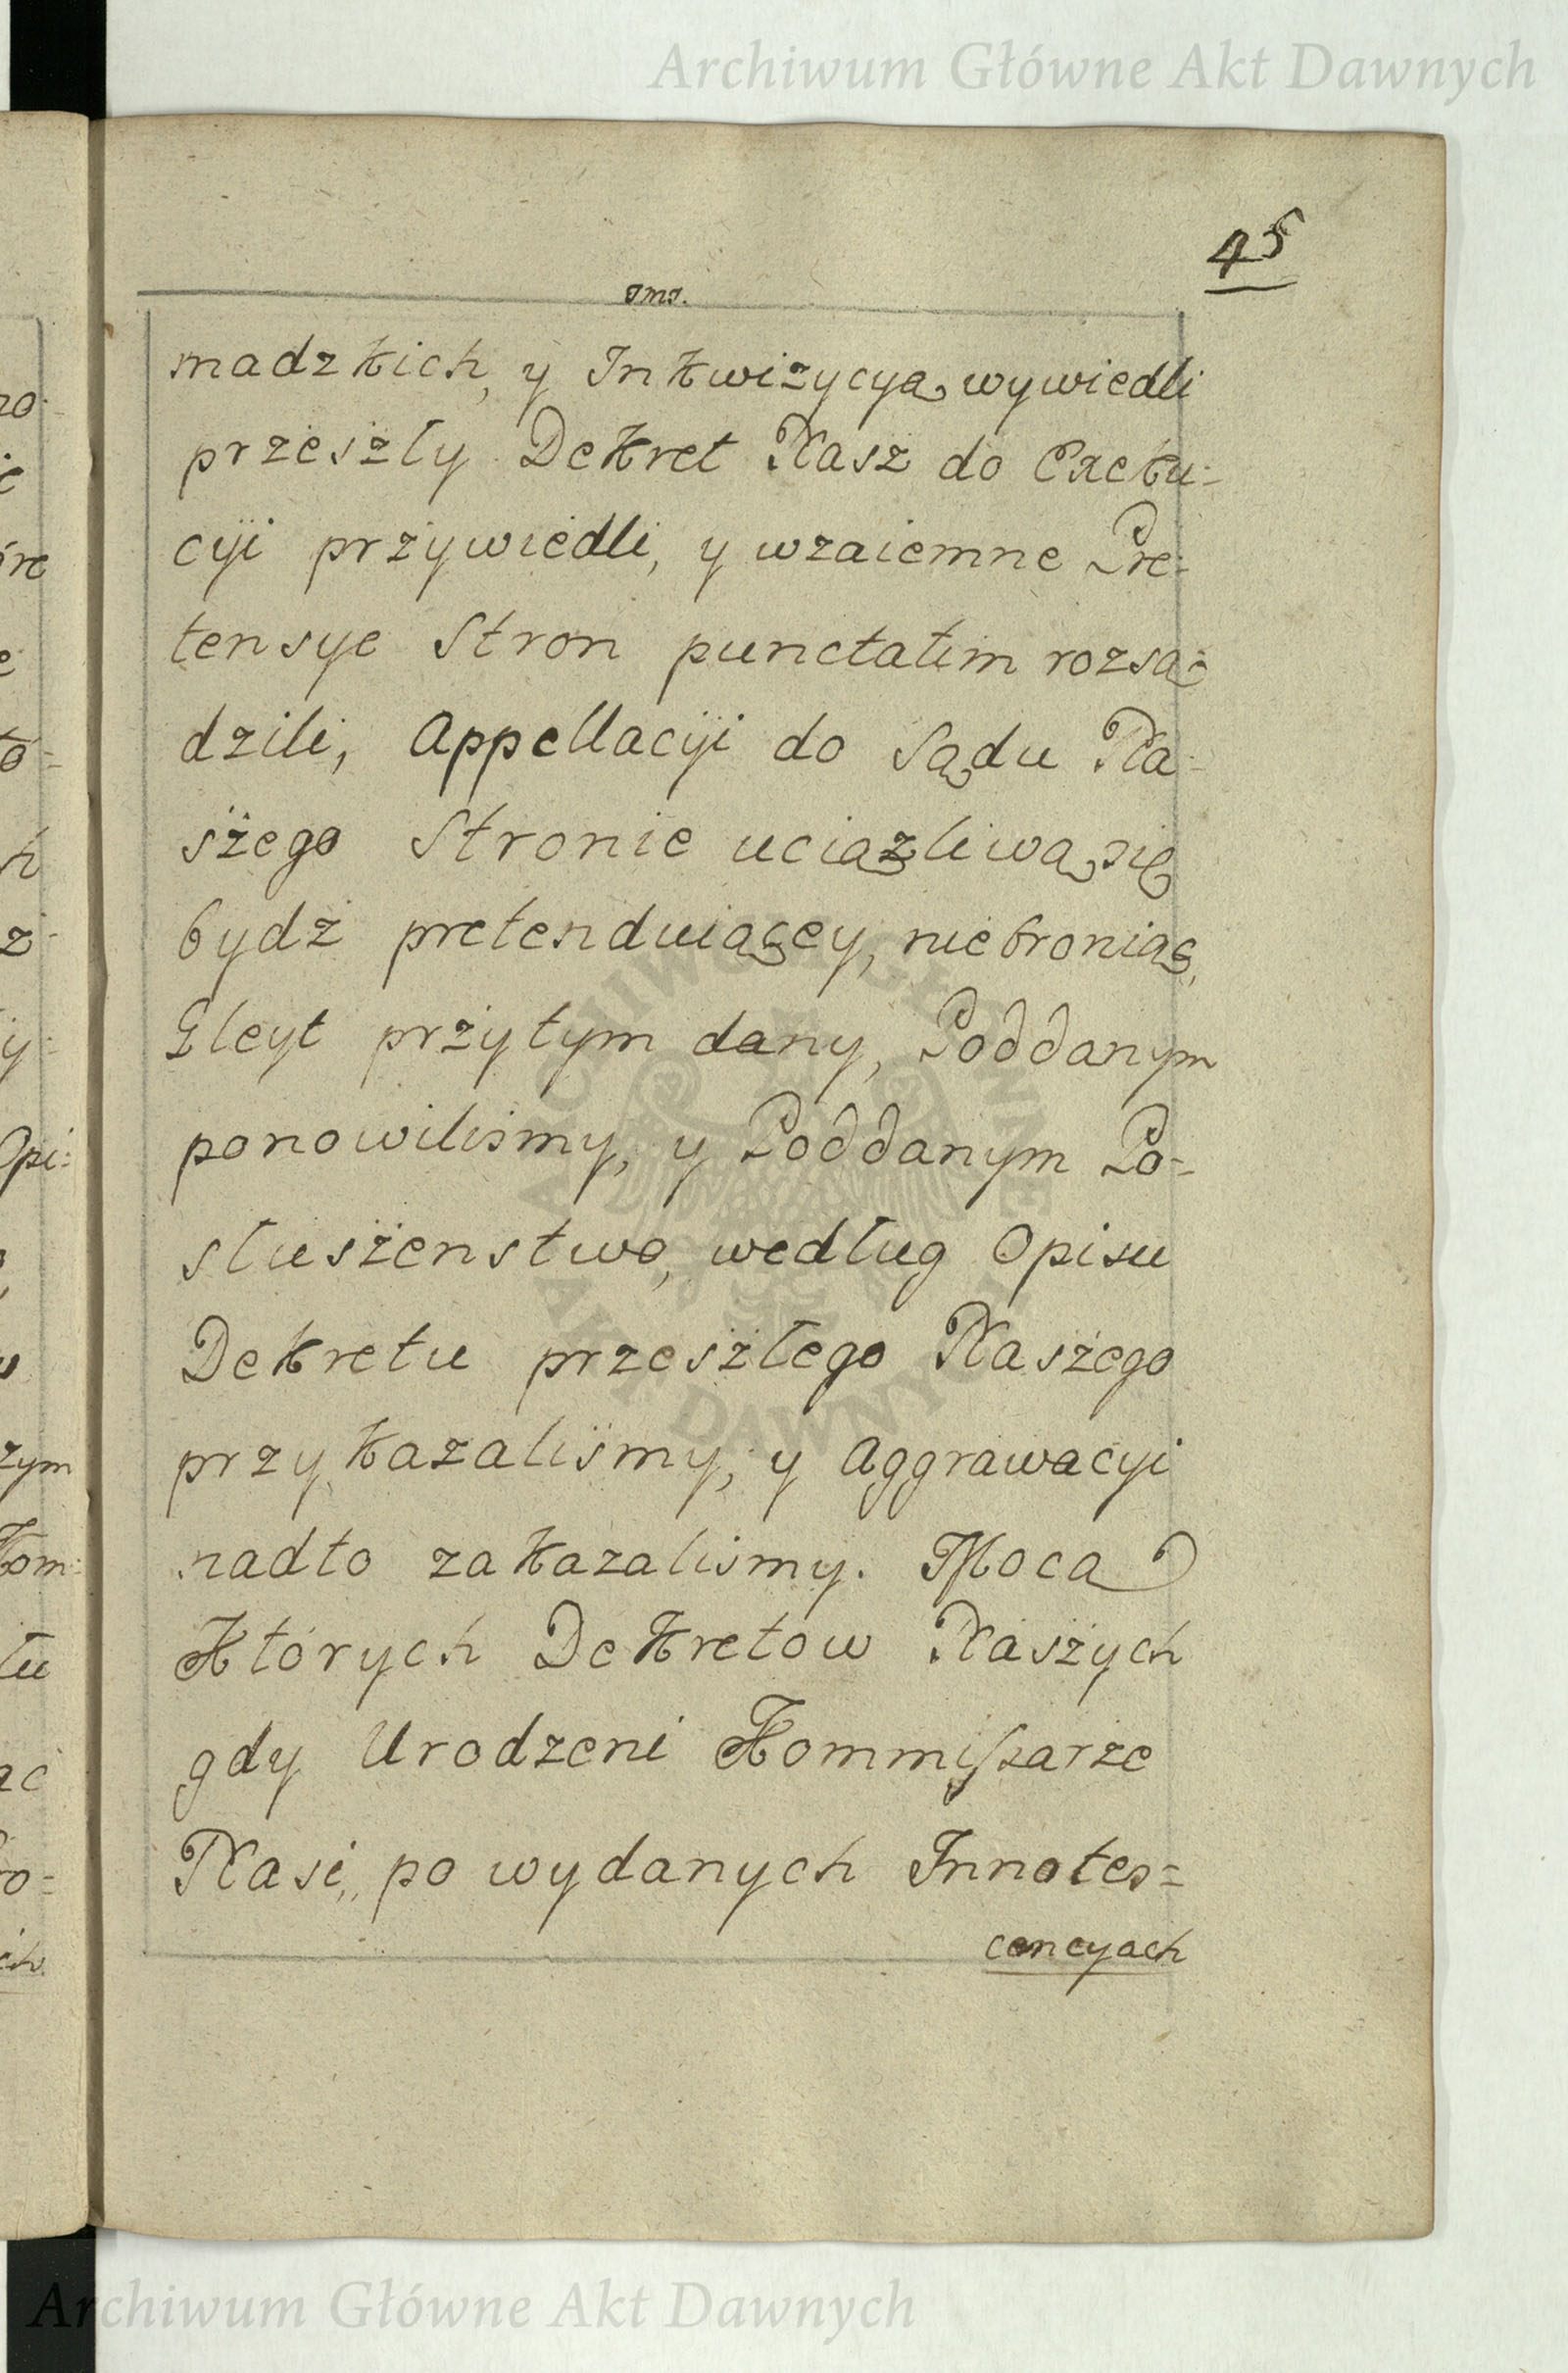 Archiwum Główne Akt Dawnych
45
madzkich, y Inkwizycyą wywiedli
przeszły Dekret Nasz do Exeku-
cyi przywiedli, y wzaiemne Pre-
tensye Stron punctatim rozsą-
dzili, Appellacyi do Sądu Na-
szego Stronie uciążliwą się
bydź pretenduiącey, niebroniąc,
Gleyt przytym dany, Poddanym
ponowiliśmy, y Poddanym Po-
słuszenstwo, według Opisu
Dekretu przeszłego Naszego
przykazaliśmy, y Aggrawacyi
nadto zakazaliśmy. Mocą
Których Dekretow Naszych
gdy Urodzeni Kommissarze
Nasi, po wydanych Innotes=
cencyach
Archiwum Główne Akt Dawnych